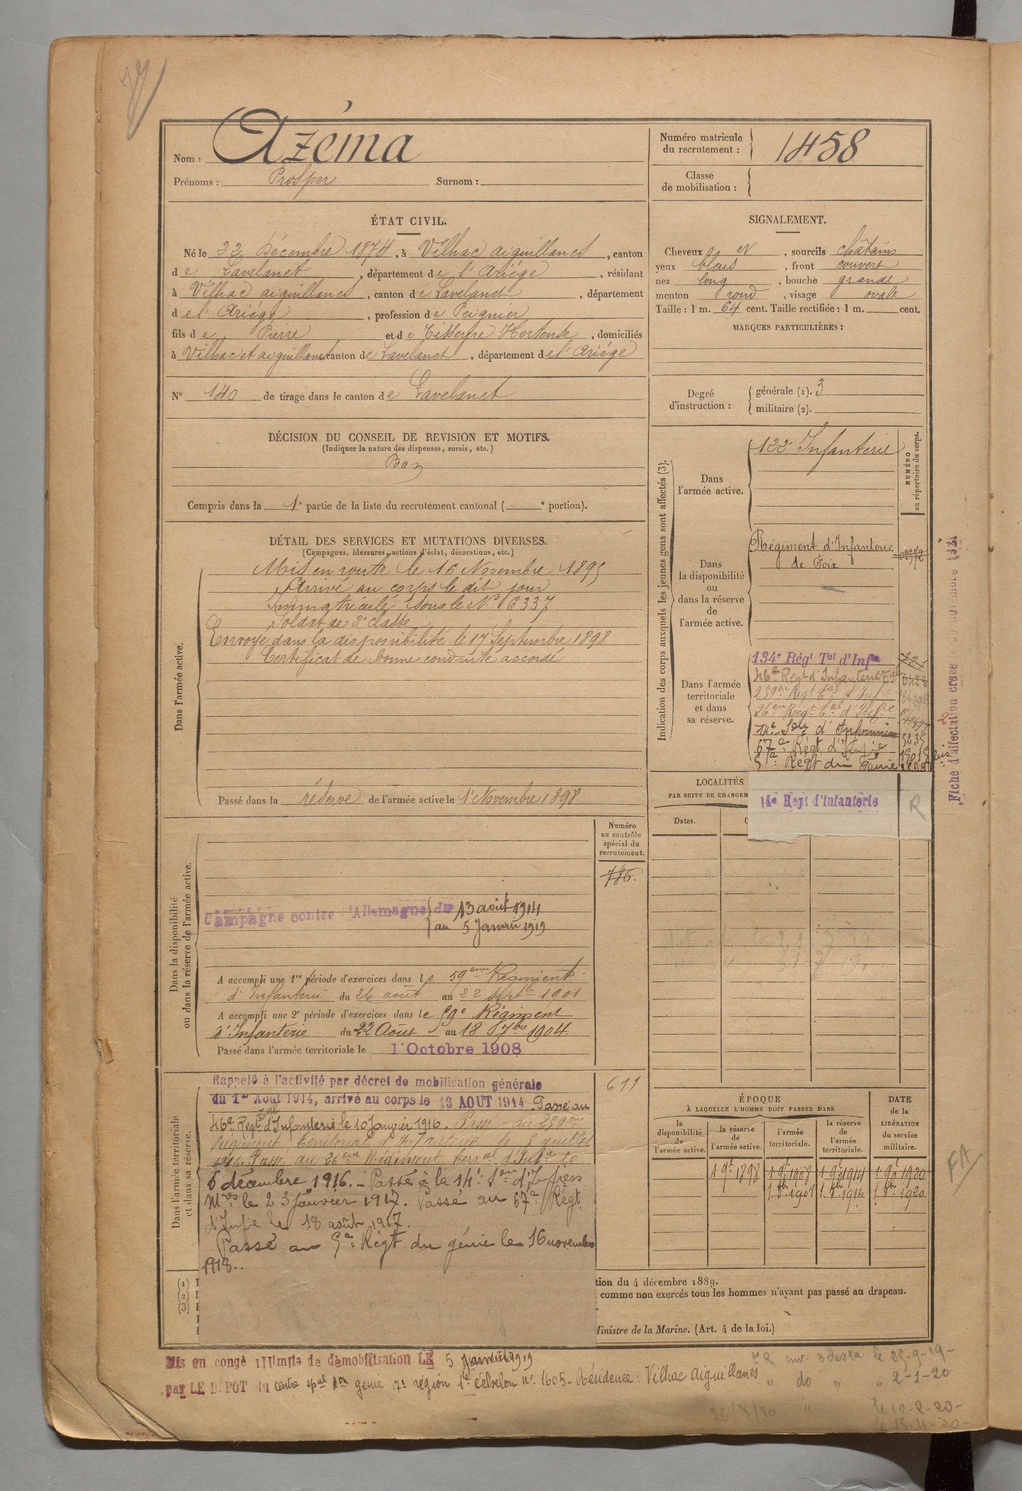 Nom : Azéma
Prénoms : Prosper Surnom :
Numéro matricule du recrutement : 1458
Classe de mobilisation :
ÉTAT CIVIL.
Né le 22 Décembre 1874, à Vilhac aiguillanes, canton
de Lavelanet, département de l'Ariège, résidant
à Vilhac aiguillanes, canton de Lavelanet, département
de l'Ariège, profession de Peignier
fils de Pierre et de Hortense, domiciliés
à Vilhac et aiguillanes canton de Lavelanet, département de l'Ariège
N° 140 de tirage dans le canton de Lavelanet
SIGNALEMENT.
Cheveux et, sourcils châtains
yeux bleus, front couvert
nez long, bouche grande
menton rond, visage ovale
Taille : 1 m. 64 cent. Taille rectifiée : 1 m. cent.
MARQUES PARTICULIÈRES :
Degré d'instruction : générale (1). 3
militaire (2).
DÉCISION DU CONSEIL DE REVISION ET MOTIFS.
(Indiquer la nature des dispenses, sursis, etc.)
Bon
Compris dans la 1e partie de la liste du recrutement cantonal ( e portion).
DÉTAIL DES SERVICES ET MUTATIONS DIVERSES.
(Campagnes, blessures, actions d'éclat, décorations, etc.)
Dans l'armée active.
Mis en route le 16 Novembre 1895
Arrivé au corps le dit jour
Immatriculé sous le N° 6337
Soldat de 2e classe
Envoyé dans la disponibilité le 17 Septembre 1898
Certificat de bonne conduite accordé
Passé dans la réserve de l'armée active le 1er Novembre 1898
Indication des corps auxquels les jeunes gens sont affectés (3).
NUMÉRO au répertoire du corps.
Dans l'armée active.
122e Infanterie
Dans la disponibilité ou dans la réserve de l'armée active.
Régiment d'Infanterie
de Foix
Dans l'armée territoriale et dans sa réserve.
134e Régt Tal d'Infie
46e Regt d'Infanterie Tal
259me Régt Tal d'Infie
36me Régt Tal d'Infie
14e Son d'Infirmiers
67e Régt d'Infie
5e Régt du Génie
14e Regt d'Infanterie
R
Fiche d'affectation créée
LOCALITÉS
PAR SUITE DE CHANGEM
Dates.
Numéro au contrôle spécial du recrutement.
786
Dans la disponibilité ou dans la réserve de l'armée active.
Campagne contre l'Allemagne du 13 août 1914
au 5 Janvier 1919
A accompli une 1re période d'exercices dans le 59eme Régiment
d'Infanterie du 26 août au 22 septbre 1901
A accompli une 2e période d'exercices dans le 59e Régiment
d'Infanterie du 22 Août au 18 7bre 1904
Passé dans l'armée territoriale le 1er Octobre 1908
Dans l'armée territoriale et dans sa réserve.
611
Rappelé à l'activité par décret de mobilisation générale
du 1er Août 1914, arrivé au corps le 13 AOUT 1914 Passé au
46e Régt Tal d'Infanterie le 10 Janvier 1916. Passé au 259me
Régiment territorial d'Infanterie le 5 juillet
1916. Passé au 36eme Régiment terral d'Infie le
6 décembre 1916. - Passé à la 14e Son d'Infirers
Mres le 23 janvier 1917. Passé au 67e Régt
d'Infie le 18 août 1917.
Passé au 5e Régt du génie le 16 novembre
1918.
ÉPOQUE
À LAQUELLE L'HOMME DOIT PASSER DANS
la disponibilité de l'armée active.
la réserve de l'armée active.
l'armée territoriale.
la réserve de l'armée territoriale.
DATE de la LIBÉRATION du service militaire.
1 9e 1898 1 9e 1908 1 9e 1914 1 9e 1920
1 8bre 1908 1 8bre 1914 1 8bre 1920
FA
(1)
(2)
(3)
tion du 4 décembre 1889.
comme non exercés tous les hommes n'ayant pas passé au drapeau.
Ministre de la Marine. (Art. 4 de la loi.)
Mis en congé illimité de démobilisation LE 5 Janvier 1919
par LE DEPOT du génie région 1er échelon n° 1605 - Résidence : Vilhac Aiguillanes
le 25-9-19-
do 2-1-20
26/8/20
le 10-2-20-
le 15-11-20-